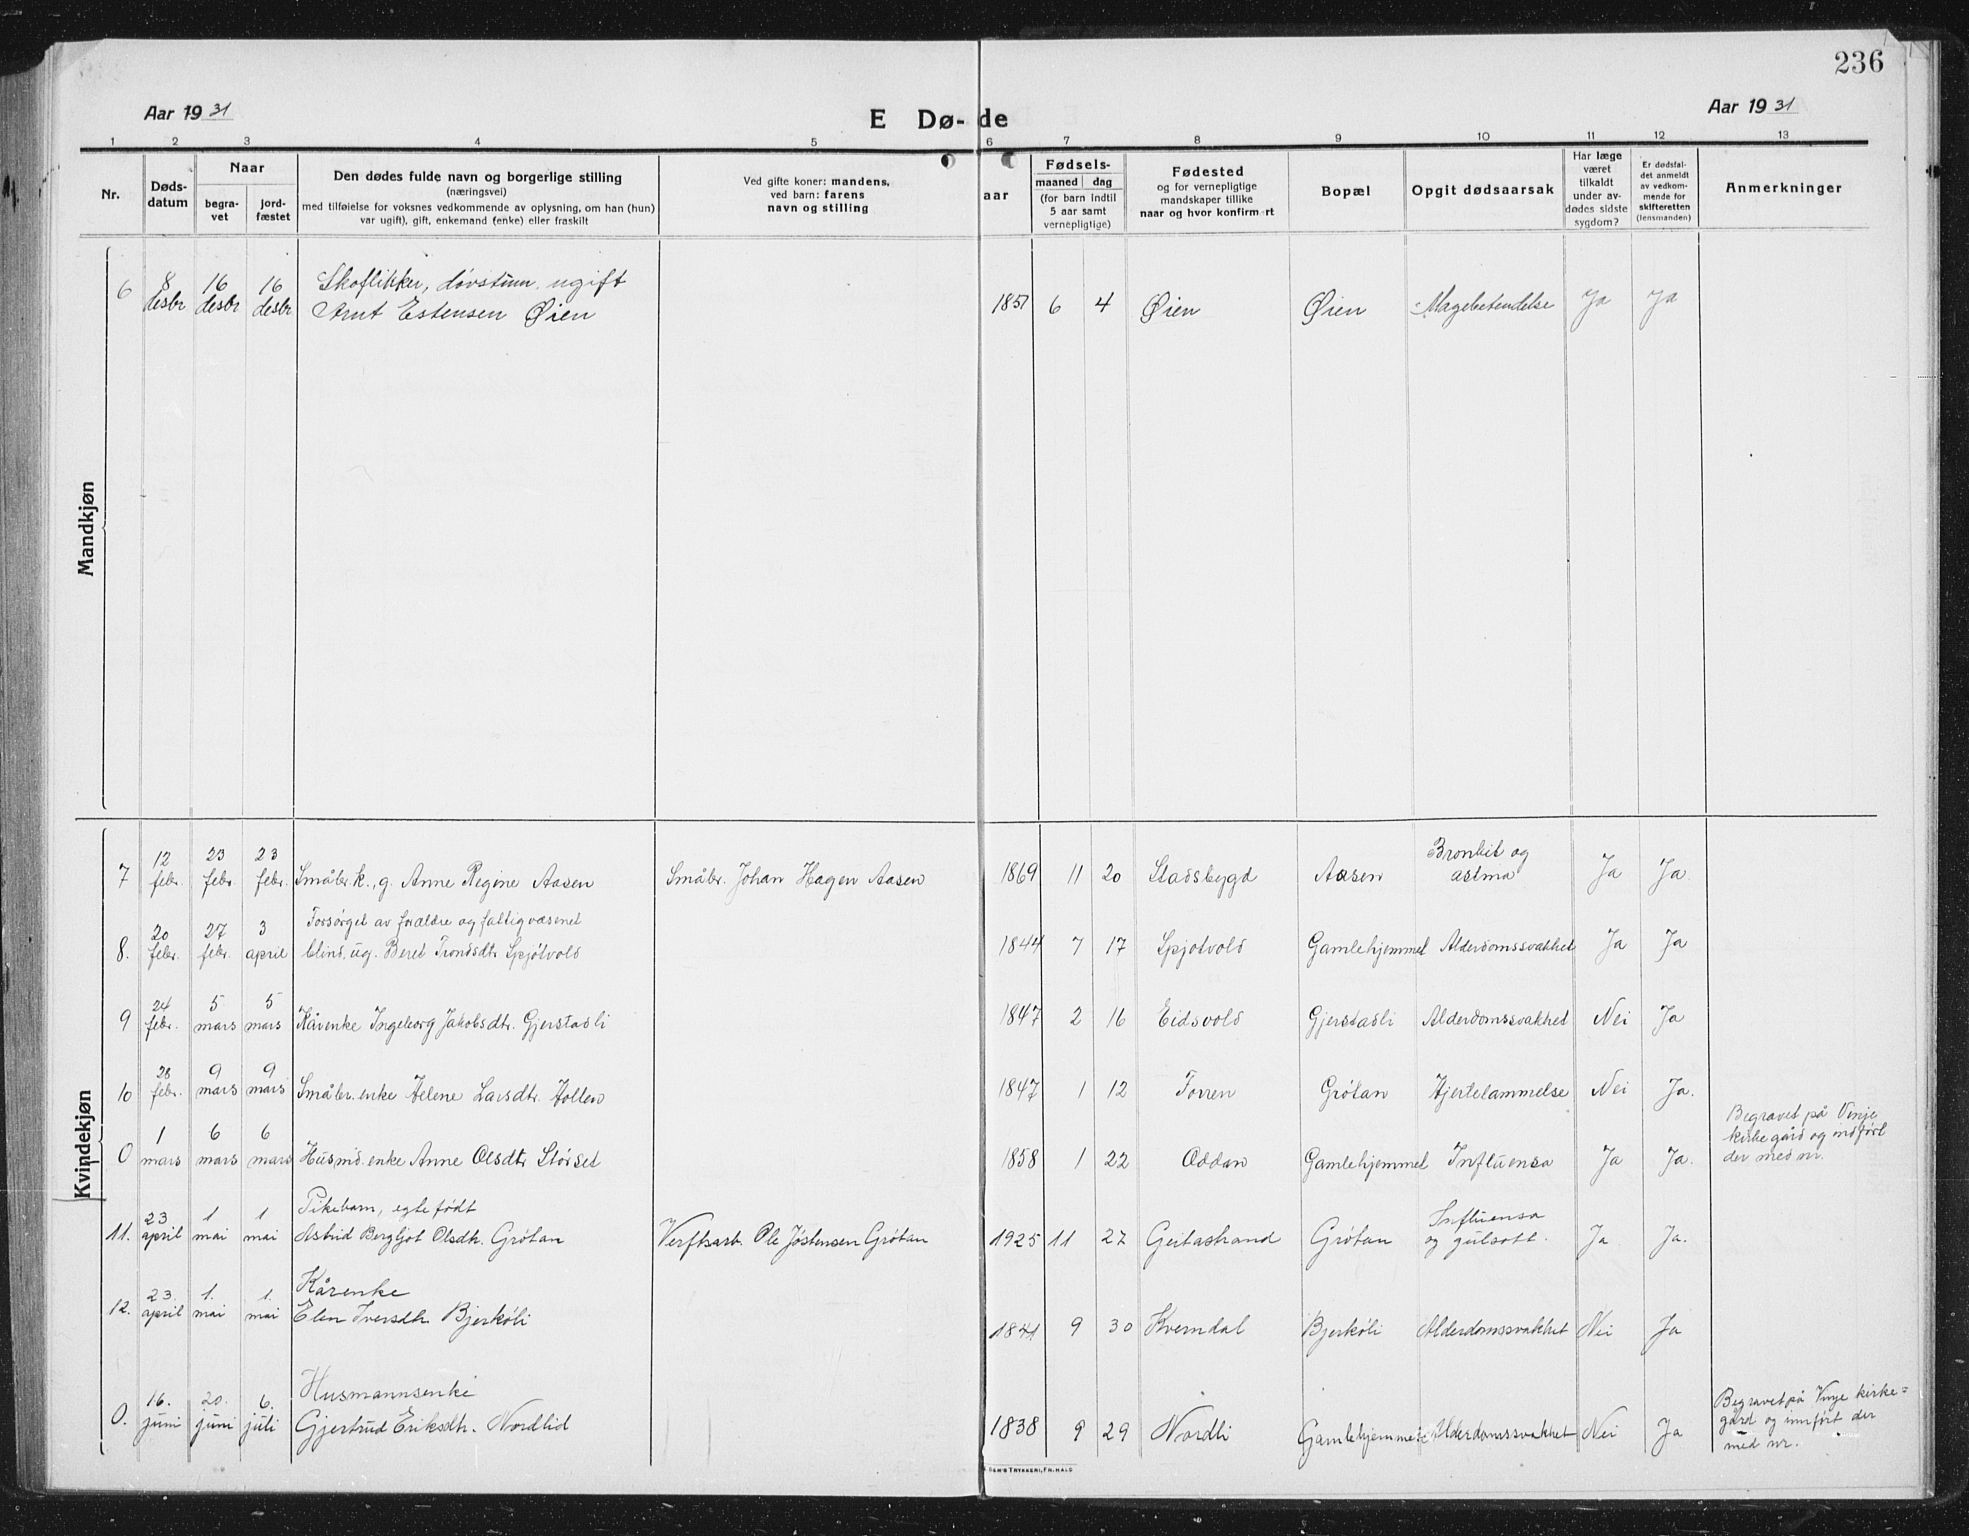 236
Aar 19 31
E Dø- de
Aar 19 31
1 2 3 4 5 6 7 8 9 10 11 12 13
Nr.
Døds-
datum
Naar
begra-
vet
jord-
fæstet
Den dødes fulde navn og borgerlige stilling
(næringsvei)
med tilføielse for voksnes vedkommende av oplysning, om han (hun)
var ugift), gift, enkemand (enke) eller fraskilt
Ved gifte koner: mandens,
ved barn: farens
navn og stilling
aar
Fødsels-
maaned dag
(for barn indtil
5 aar samt
vernepligtige)
Fødested
og for vernepligtige
mandskaper tillike
naar og hvor konfirmert
Bopæl
Opgit dødsaarsak
Har læge
været
tilkaldt
under av-
dødes sidste
sygdom?
Er dødsfal-
det anmeldt
av vedkom-
mende for
skifteretten
(lensmanden)
Anmerkninger
Mandkjøn
6 8 desbr 16 desbr 16 desbr Skoflikker, døvstum. ugift
Arnt Estensen Øien 1851 6 4 Øien Øien Magebetendelse Ja Ja
Kvindekjøn
7 12 febr. 23 febr. 23 febr. Småbr.k., g. Anne Regine Aasen Småbr. Johan Hagen Aasen 1869 11 20 Stadsbygd Aasen Bronkit og
astma Ja Ja
Forsørget av forældre og fattigvæsenet
8. 20 febr. 27 febr. 3 april blind, ug. Beret Trondsdtr. Spjøtvold 1844 7 17 Spjøtvold Gamlehjemmet Alderdomssvakhet Ja Ja
9 24 febr. 5 mars 5 mars Kårenke Ingeborg Jakobsdtr. Gjerstadli 1847 2 16 Eidsvold Gjerstadli Alderdomssvakhet Nei Ja
10 28 febr. 9 mars 9 mars Småbr. enke Helene Larsdtr. Holten 1847 1 12 Forren Grøtan Hjertelammelse Nei Ja.
0 1 mars 6 mars 6 mars Husmd. enke Anne Olsdtr Størset 1858 1 22 Oddan Gamlehjemmet Influensa Ja Ja.
Begravet på Vinje
kirkegård og indført
der med nr.
Pikebarn, egte født
11. 23 april 1 mai 1 mai Astrid Bergljot Olsdtr. Grøtan Verftsarb. Ole Jøstensen Grøtan 1925 11 27 Geitastrand Grøtan Influensa
og gulsott. Ja Ja.
Kårenke
12. 23. april 1. mai 1. mai Elen Iversdtr. Bjerkøli 1841 9 30 Kverndal Bjerkøli Alderdomssvakhet Nei Ja
Husmannsenke
0. 16. juni 20. juni 6. juli Gjertrud Eriksdtr. Nordlid 1838 9 29 Nordli Gamlehjemmet Alderdomssvakhet Nei Ja
Begravet på Vinje kirke=
gård og innført der
med nr.
TRYKKERI, FR.HALD